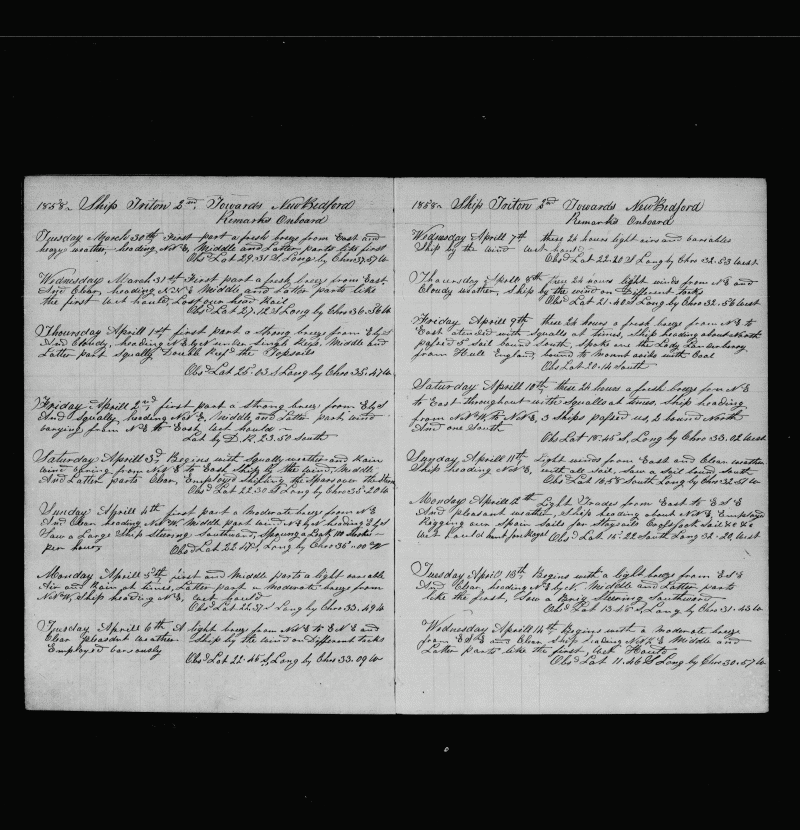 1858 Ship Triton 2nd Towards New Bedford
Remarks Onboard
Tuesday March 30th First part a fresh breeze from East and
weather, heading N by E, Middle and Latter parts like first
Obsd Lat 29.31 S Long by Chro 37.57 W
Wednesday March 31st First part a fresh breeze from East.
And Clear, heading N.N.E Middle and Latter parts like
the first Lost our head Rail
Obsd Lat 27.12 S Long by Chro 36.56 W
Thoursday Aprill 1st first part a Strong breeze from E by S
And Cloudy, heading N E by N under Single Reefs, Middle and
Latter part Squally Double Reefd the Topsails
Obsd Lat 25.03 S Long by Chro 35.47 W
Friday Aprill 2nd, first part a strong breeze from E by S
And Squally, heading N by E, Middle and Latter parts wind
varying from N E to East,
Lat by D.R. 23.50 South
Saturday Aprill 3d Begins with Squally weather and Rain
wind varying from N by E to East Ship by the wind, Middle
And Latter parts Clear, Employd Shifting the Spars over the
Obsd Lat 22.30 S Long by Chro 35.20 W
Sunday Aprill 4th first part a Moderate breeze from N E
And Clear heading N by W. Middle part wind N E by N heading E by S
Saw a Large Ship Steering Southward, Sprung a Leak, 100 Strokes
per hour Obsd Lat 22.17 S, Long by Chro 35.00 W
Monday Aprill 5th, first and Middle parts a light variable
Air and Rain at times, Latter part a Moderate breeze from
N by W, Ship heading N E,
Obsd Lat 22.37 S Long by Chro 33.49 W
Tuesday Aprill 6th A light breeze from N by E to E N E and
Clear Pleasant weather Ship by the wind on Different tacks
Employed variously
Obsd Lat 22.45 S, Long by Chro 33.09 W
1858 Ship Triton 2nd Towards New Bedford
Remarks Onboard
Wednesday Aprill 7th these 24 hours light airs and variables
Ship by the wind
Obsd Lat 22.20 S Long by Chro 32.53 West
Thoursday Aprill 8th these 24 hours light winds from N E and
Cloudy weather, Ship by the wind on Different tacks
Obsd Lat 21.40 S Long by Chro 32.56 West
Friday Aprill 9th these 24 hours a fresh breeze from N E to
East attended with Squalls at times, Ship heading about North
passed 5 sail bound South, Spoke one the Lady
from Hull England bound to with Coal
Obsd Lat 20.14 South
Saturday Aprill 10th these 24 hours a fresh breeze from N E
to East throughout with Squalls at times, Ship heading
from N by W to N by E, 3 Ships passed us, 2 bound North
And one South
Obsd Lat 18.45 S, Long by Chro 33.02 West
Sunday Aprill 11th light winds from East and Clear weather
Ship heading N by E, with all sail, Saw a Sail bound South
Obsd Lat 16.58 South Long by Chro 32.51 W
Monday Aprill 12th Light Trades from East to E S E
And pleasant weather, Ship heading about N by E, Employed
Rigging our Spare Sails for Staysails Gafftopsail &c &c
bent for Royal Obsd Lat 15.22 South Long 32.20 West
Tuesday Aprill 13th, Begins with a light breeze from E S E
And Clear, heading N E by N. Middle and Latter parts
like the first, Saw a Brig Steering Southward
Obsd Lat 13.48 S, Long by Chro 31.43 W
Wednesday Aprill 14th Begins with a moderate breeze
from E S E and Clear Ship heading N by E Middle and
Latter parts like the first,
Obsd Lat 11.46 S Long by Chro 30.57 W